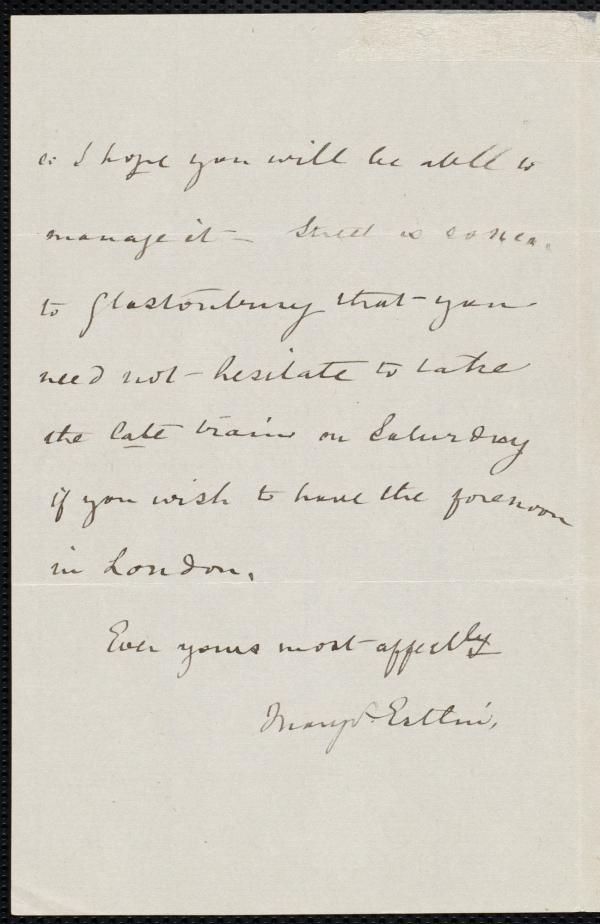 & I hope you will be able to
manage it – Street is so near
to Glastonbury that you
need not hesitate to take
the late train on Saturday
if you wish to have the forenoon
in London.
Ever yours most affectly
Mary A. Estlin.